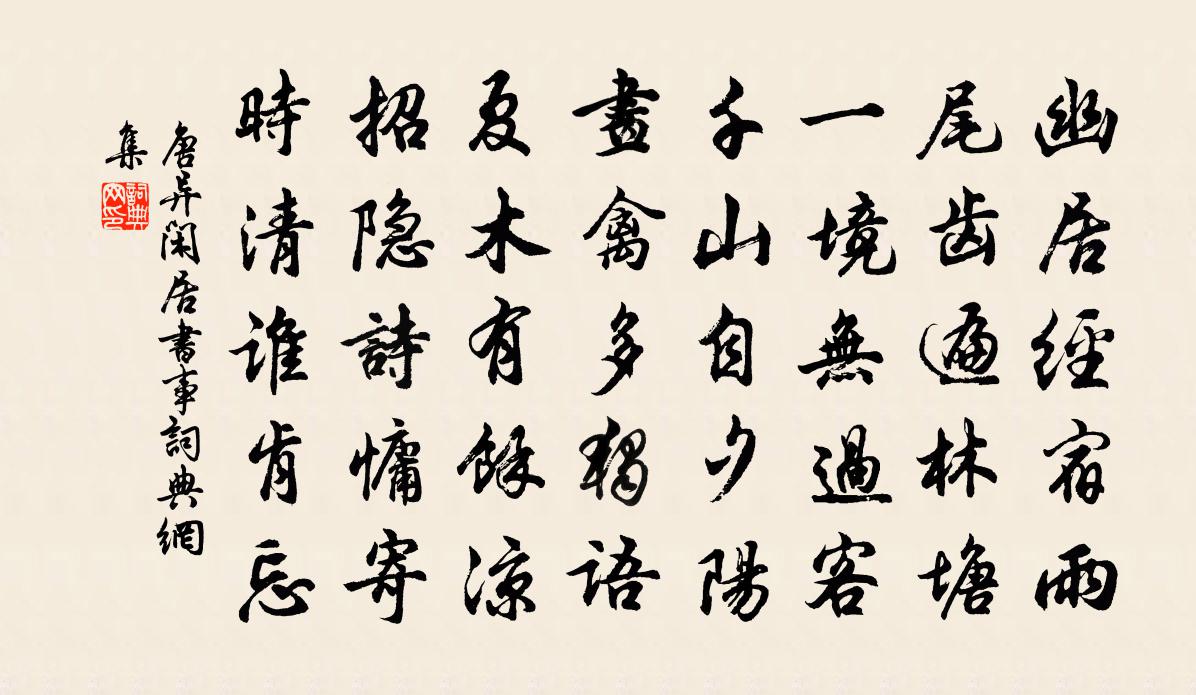 幽居經宿雨
尾齿遍林塘
一境無過客
千山自夕陽
晝禽多獨語
夏木有餘涼
招隐詩慵寄
時清谁肯忘
唐异闲居書事詞典網
集
詞典
网印